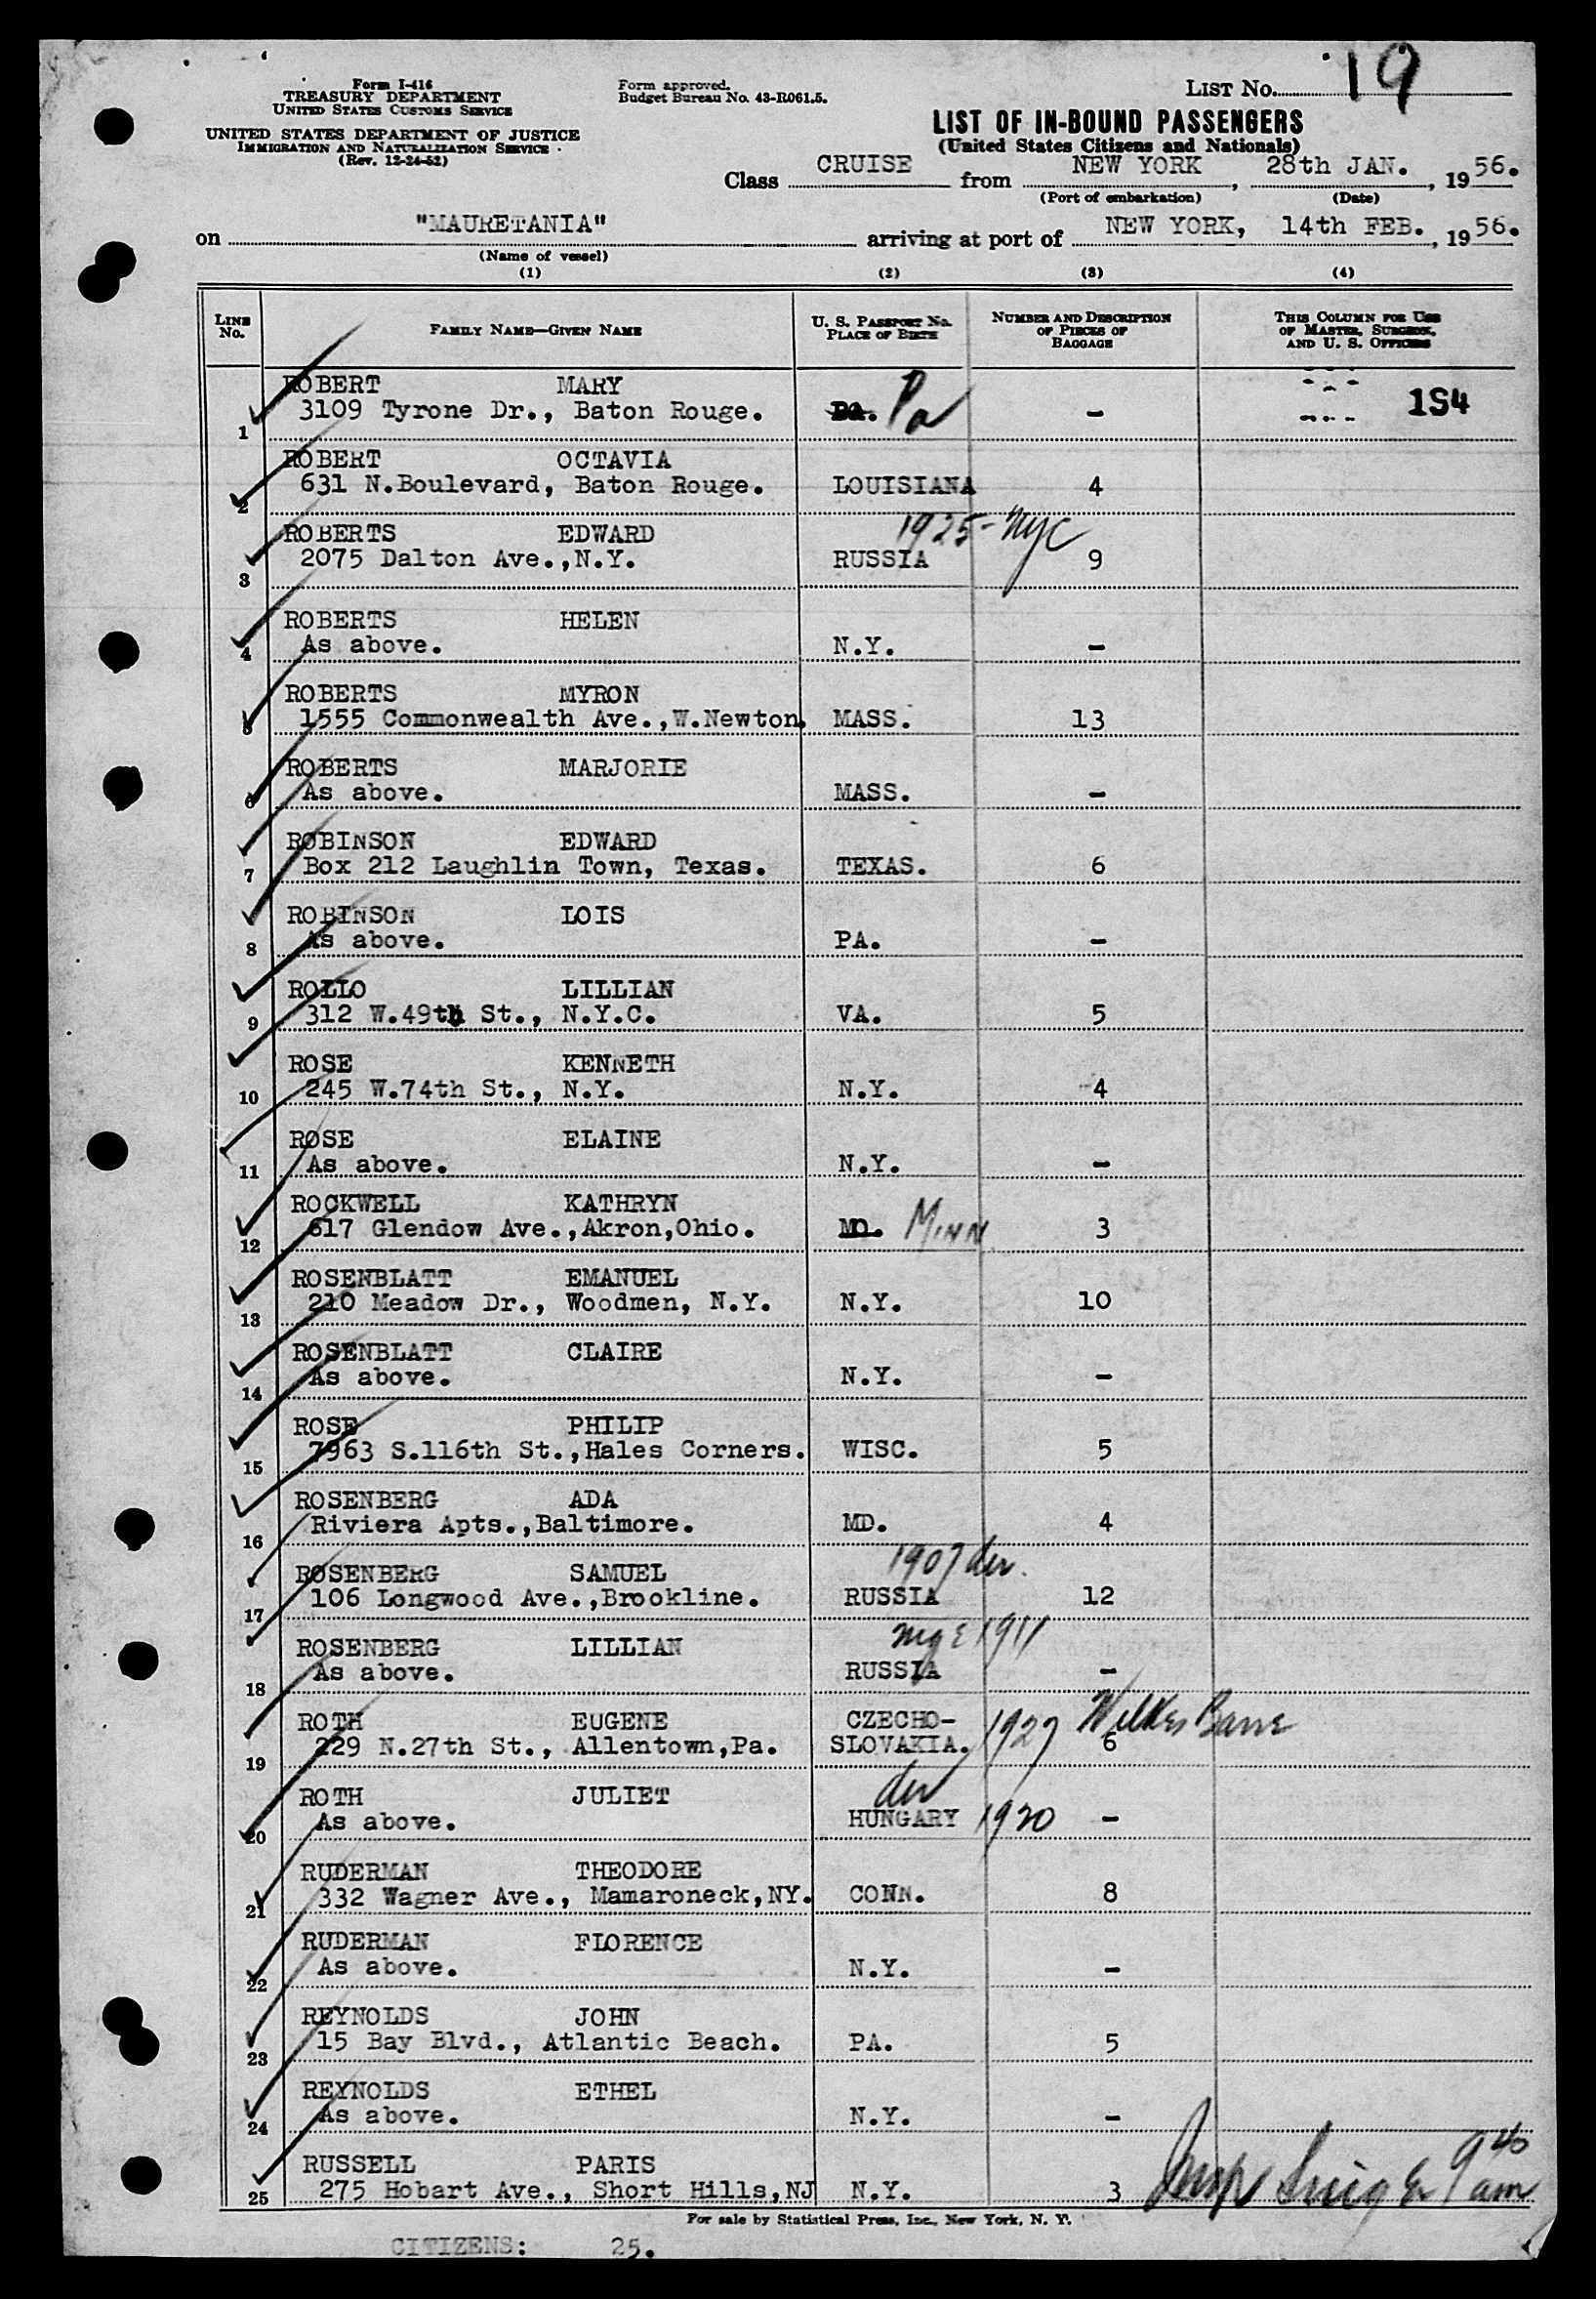 Form I-416
TREASURY DEPARTMENT
UNITED STATES CUSTOMS SERVICE
UNITED STATES DEPARTMENT OF JUSTICE
IMMIGRATION AND NATURALIZATION SERVICE
(Rev. 12-24-52)
Form approved.
Budget Bureau No. 43-R061.5.
LIST No. 19
LIST OF IN-BOUND PASSENGERS
(United States Citizens and Nationals)
Class CRUISE from NEW YORK, 28th JAN., 1956.
(Port of embarkation) (Date)
on "MAURETANIA" arriving at port of NEW YORK, 14th FEB., 1956.
(Name of vessel)
(1) (2) (3) (4)
LINE No. FAMILY NAME—GIVEN NAME U. S. PASSPORT No. PLACE OF BIRTH NUMBER AND DESCRIPTION OF PIECES OF BAGGAGE THIS COLUMN FOR USE OF MASTER, SURGEON, AND U. S. OFFICERS
ROBERT MARY
1 3109 Tyrone Dr., Baton Rouge. Pa - 1S4
ROBERT OCTAVIA
2 631 N.Boulevard, Baton Rouge. LOUISIANA 4
ROBERTS EDWARD 1925-NYC
3 2075 Dalton Ave.,N.Y. RUSSIA 9
ROBERTS HELEN
4 As above. N.Y. -
ROBERTS MYRON
5 1555 Commonwealth Ave.,W.Newton. MASS. 13
ROBERTS MARJORIE
6 As above. MASS. -
ROBINSON EDWARD
7 Box 212 Laughlin Town, Texas. TEXAS. 6
ROBINSON LOIS
8 As above. PA. -
ROLLO LILLIAN
9 312 W.49th St., N.Y.C. VA. 5
ROSE KENNETH
10 245 W.74th St., N.Y. N.Y. 4
ROSE ELAINE
11 As above. N.Y. -
ROCKWELL KATHRYN
12 617 Glendow Ave.,Akron,Ohio. MO. MINN 3
ROSENBLATT EMANUEL
13 210 Meadow Dr., Woodmen, N.Y. N.Y. 10
ROSENBLATT CLAIRE
14 As above. N.Y. -
ROSE PHILIP
15 7963 S.116th St.,Hales Corners. WISC. 5
ROSENBERG ADA
16 Riviera Apts.,Baltimore. MD. 4
ROSENBERG SAMUEL 1907 der.
17 106 Longwood Ave.,Brookline. RUSSIA 12
ROSENBERG LILLIAN 1911
18 As above. RUSSIA -
ROTH EUGENE CZECHO- 1927 Wilkes Barre
19 229 N.27th St., Allentown,Pa. SLOVAKIA. 6
ROTH JULIET der
20 As above. HUNGARY 1920 -
RUDERMAN THEODORE
21 332 Wagner Ave., Mamaroneck,NY. CONN. 8
RUDERMAN FLORENCE
22 As above. N.Y. -
REYNOLDS JOHN
23 15 Bay Blvd., Atlantic Beach. PA. 5
REYNOLDS ETHEL
24 As above. N.Y. -
RUSSELL PARIS
25 275 Hobart Ave., Short Hills,NJ N.Y. 3 9 40 am
For sale by Statistical Press, Inc., New York, N. Y.
CITIZENS: 25.